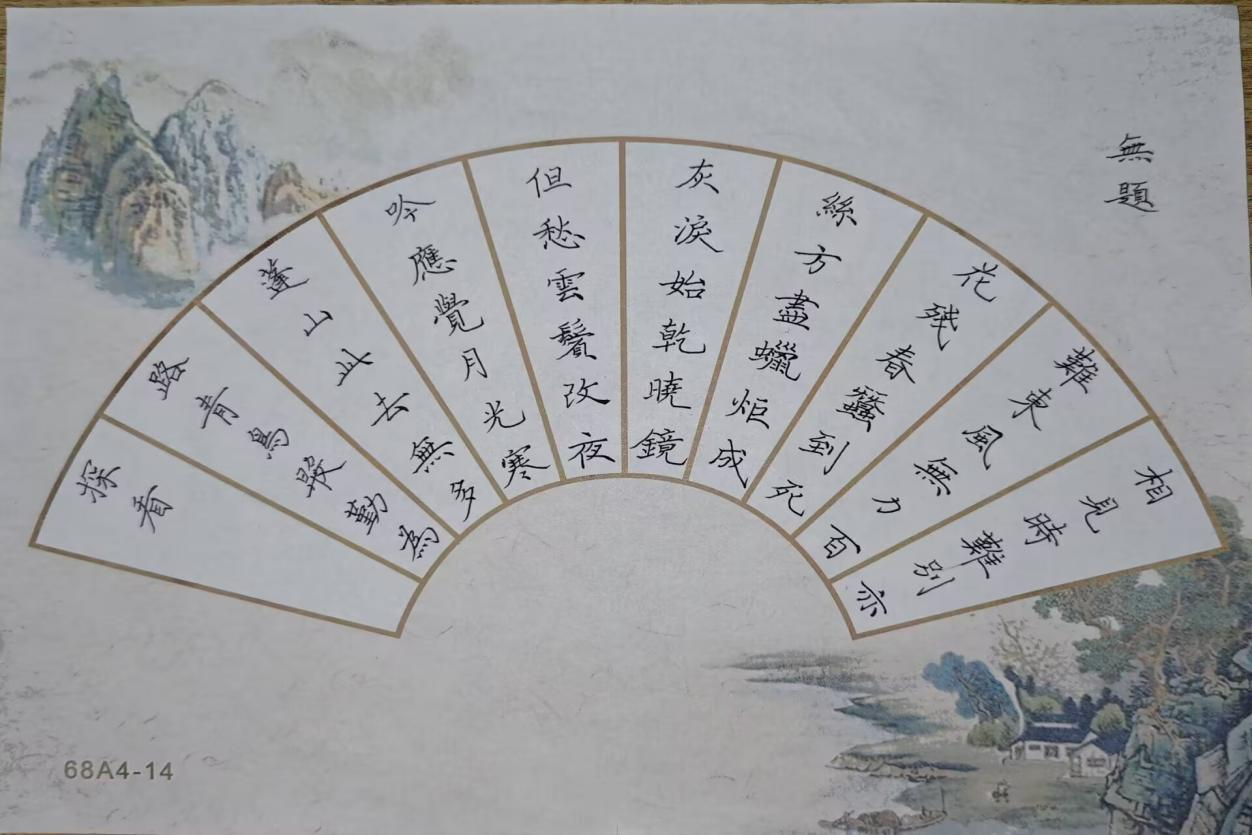 無題
相見時難別亦
難東風無力百
花殘春蠶到死
絲方盡蠟炬成
灰淚始乾曉鏡
但愁雲鬢改夜
吟應覺月光寒
蓬山此去無多
路青鳥殷勤為
探看
68A4-14